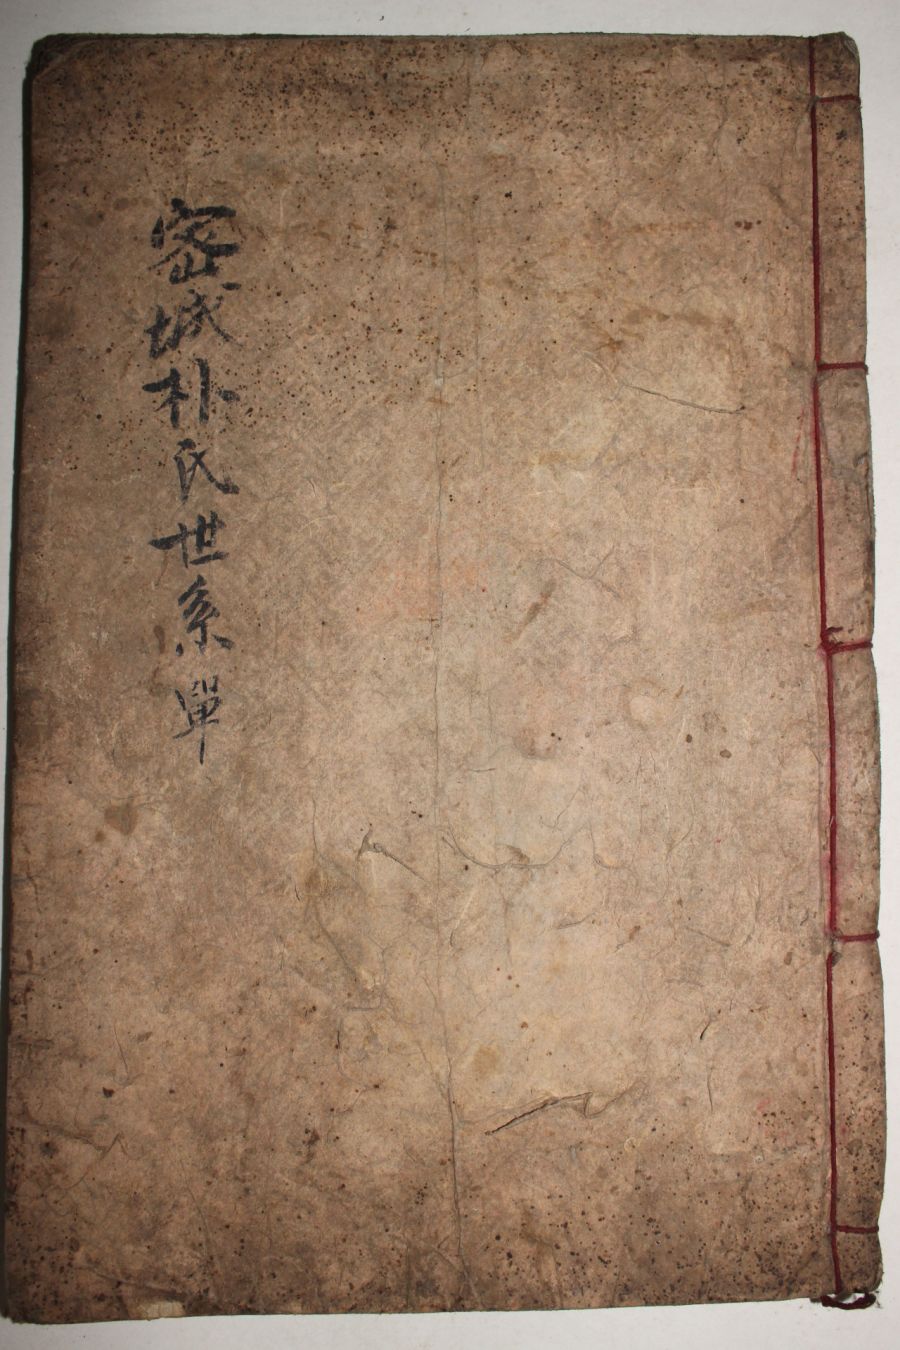 密城朴氏世系單